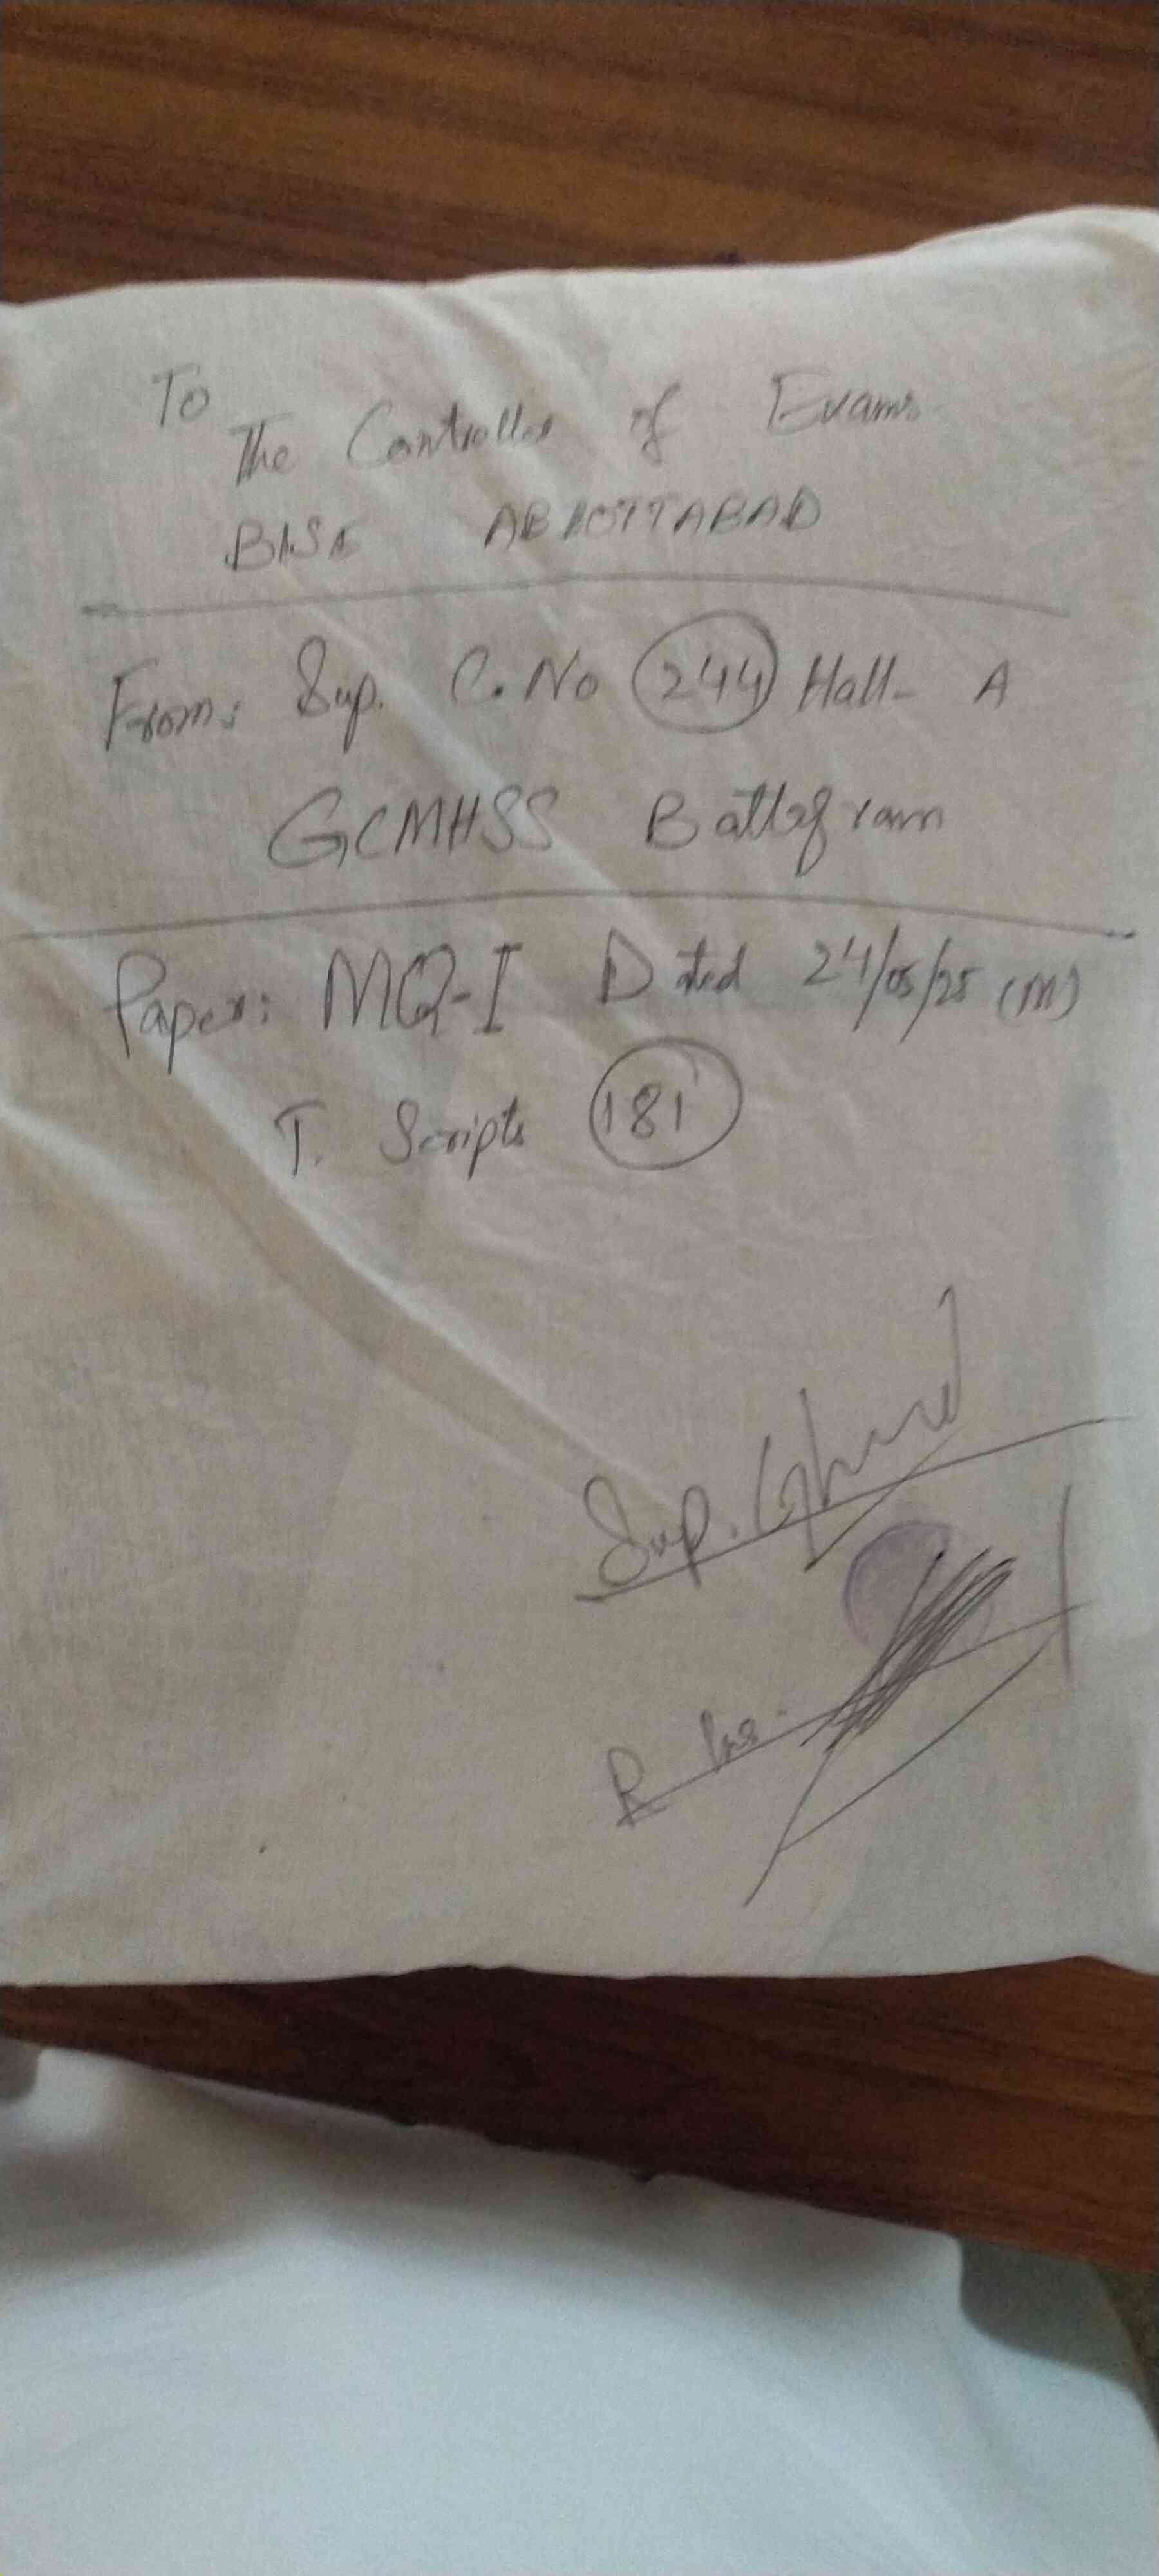 To
The Controller of Exams
BISE ABBOTTABAD
From: Sup. C.No 244 Hall- A
GCMHSS Battagram
Paper: MQ-I Dated 24/05/25 (M)
T. Scripts 181
Sup.
R